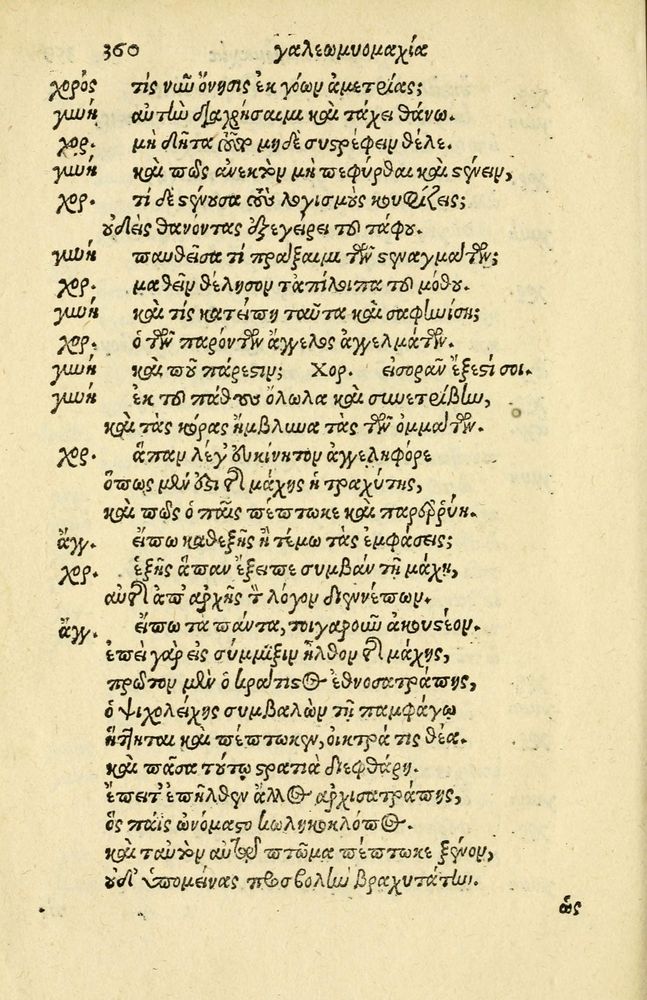 360 γαλεωμυομαχία
χορός τίς νῶϊν ὄνησις ἐκ γόων ἀμετρίας;
γυνή αὐτὴν διαχρήσαιμι καὶ τάχει θάνω.
χορ. μὴ δῆτα σὺ μὴ δὲ συστρέφειν θέλε.
γυνή καὶ πῶς ἀνεκτὸν μὴ πεφύρθαι καὶ στένειν,
χορ. τί δὲ στένουσα τοὺς λογισμοὺς κουφίζεις;
οὐδεὶς θανόντας ἐξεγείρει τοῦ τάφου.
γυνή παυθεῖσα τί πράξαιμι τῶν στεναγμάτων;
χορ. μαθεῖν θέλησον τἀπίλοιπα τοῦ μόθου.
γυνή καὶ τίς κατείπῃ ταῦτα καὶ σαφηνίσῃ;
χορ. ὁ τῶν παρόντων ἄγγελος ἀγγελμάτων.
γυνή καὶ ποῦ πάρεστιν; Χορ. εἰσορᾶν ἔξεστί σοι.
γυνή ἐκ τοῦ πάθους ὄλωλα καὶ συνετρίβην,
καὶ τὰς κόρας ἤμβλυνα τὰς τῶν ὀμμάτων.
χορ. ἅπαν λέγ' οὐκίνητον ἀγγεληφόρε
ὅπως μὲν ὅστι τῆς μάχης ἡ τραχύτης,
καὶ πῶς ὁ παῖς πέπτωκε καὶ παρερρύη.
ἄγ. εἴπω καθεξῆς ἢ τέμω τὰς ἐμφάσεις;
χορ. ἑξῆς ἅπαν ἔξειπε συμβὰν τῇ μάχῃ,
αὐτῆς ἀπ' ἀρχῆς τὸν λόγον διεννέπων.
ἄγ. εἴπω τὰ πάντα, τοιγαροῦν ἀκουστέον.
ἐπεὶ γὰρ εἰς σύμμιξιν ἦλθον τῆς μάχης,
πρῶτον μὲν ὁ κράτιστος ἐθνοσατράπης,
ὁ Ψιχολείχης συμβαλὼν τῇ παμφάγῳ
ἥττηται καὶ πέπτωκεν, οἰκτρά τις θέα.
καὶ πᾶσα τούτῳ στρατιὰ διεφθάρη.
ἔπειτ' ἐπῆλθεν ἄλλος ἀρχισατράπης,
ὃς παῖς ὠνόμαστο κωληκοκλόπος.
καὶ ταυτὸν αὐτῷ πτῶμα πέπτωκε ξένον,
οὐδ' ὑπομείνας προσβολὴν βραχυτάτην.
ὡς